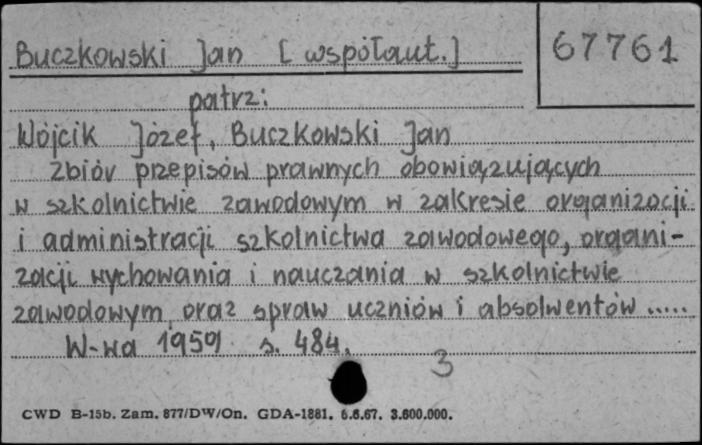 Buczkowski Jan [współaut.]
67761
patrz:
Wójcik Józef, Buczkowski Jan
Zbiór przepisów prawnych obowiązujących
w szkolnictwie zawodowym w zakresie organizacji
i administracji szkolnictwa zawodowego, organi-
zacji wychowania i nauczania w szkolnictwie
zawodowym, oraz spraw uczniów i absolwentów .....
W-wa 1959 s. 484.
3
CWD B-15b. Zam. 877/DW/On. GDA-1881. 6.6.67. 3.600.000.